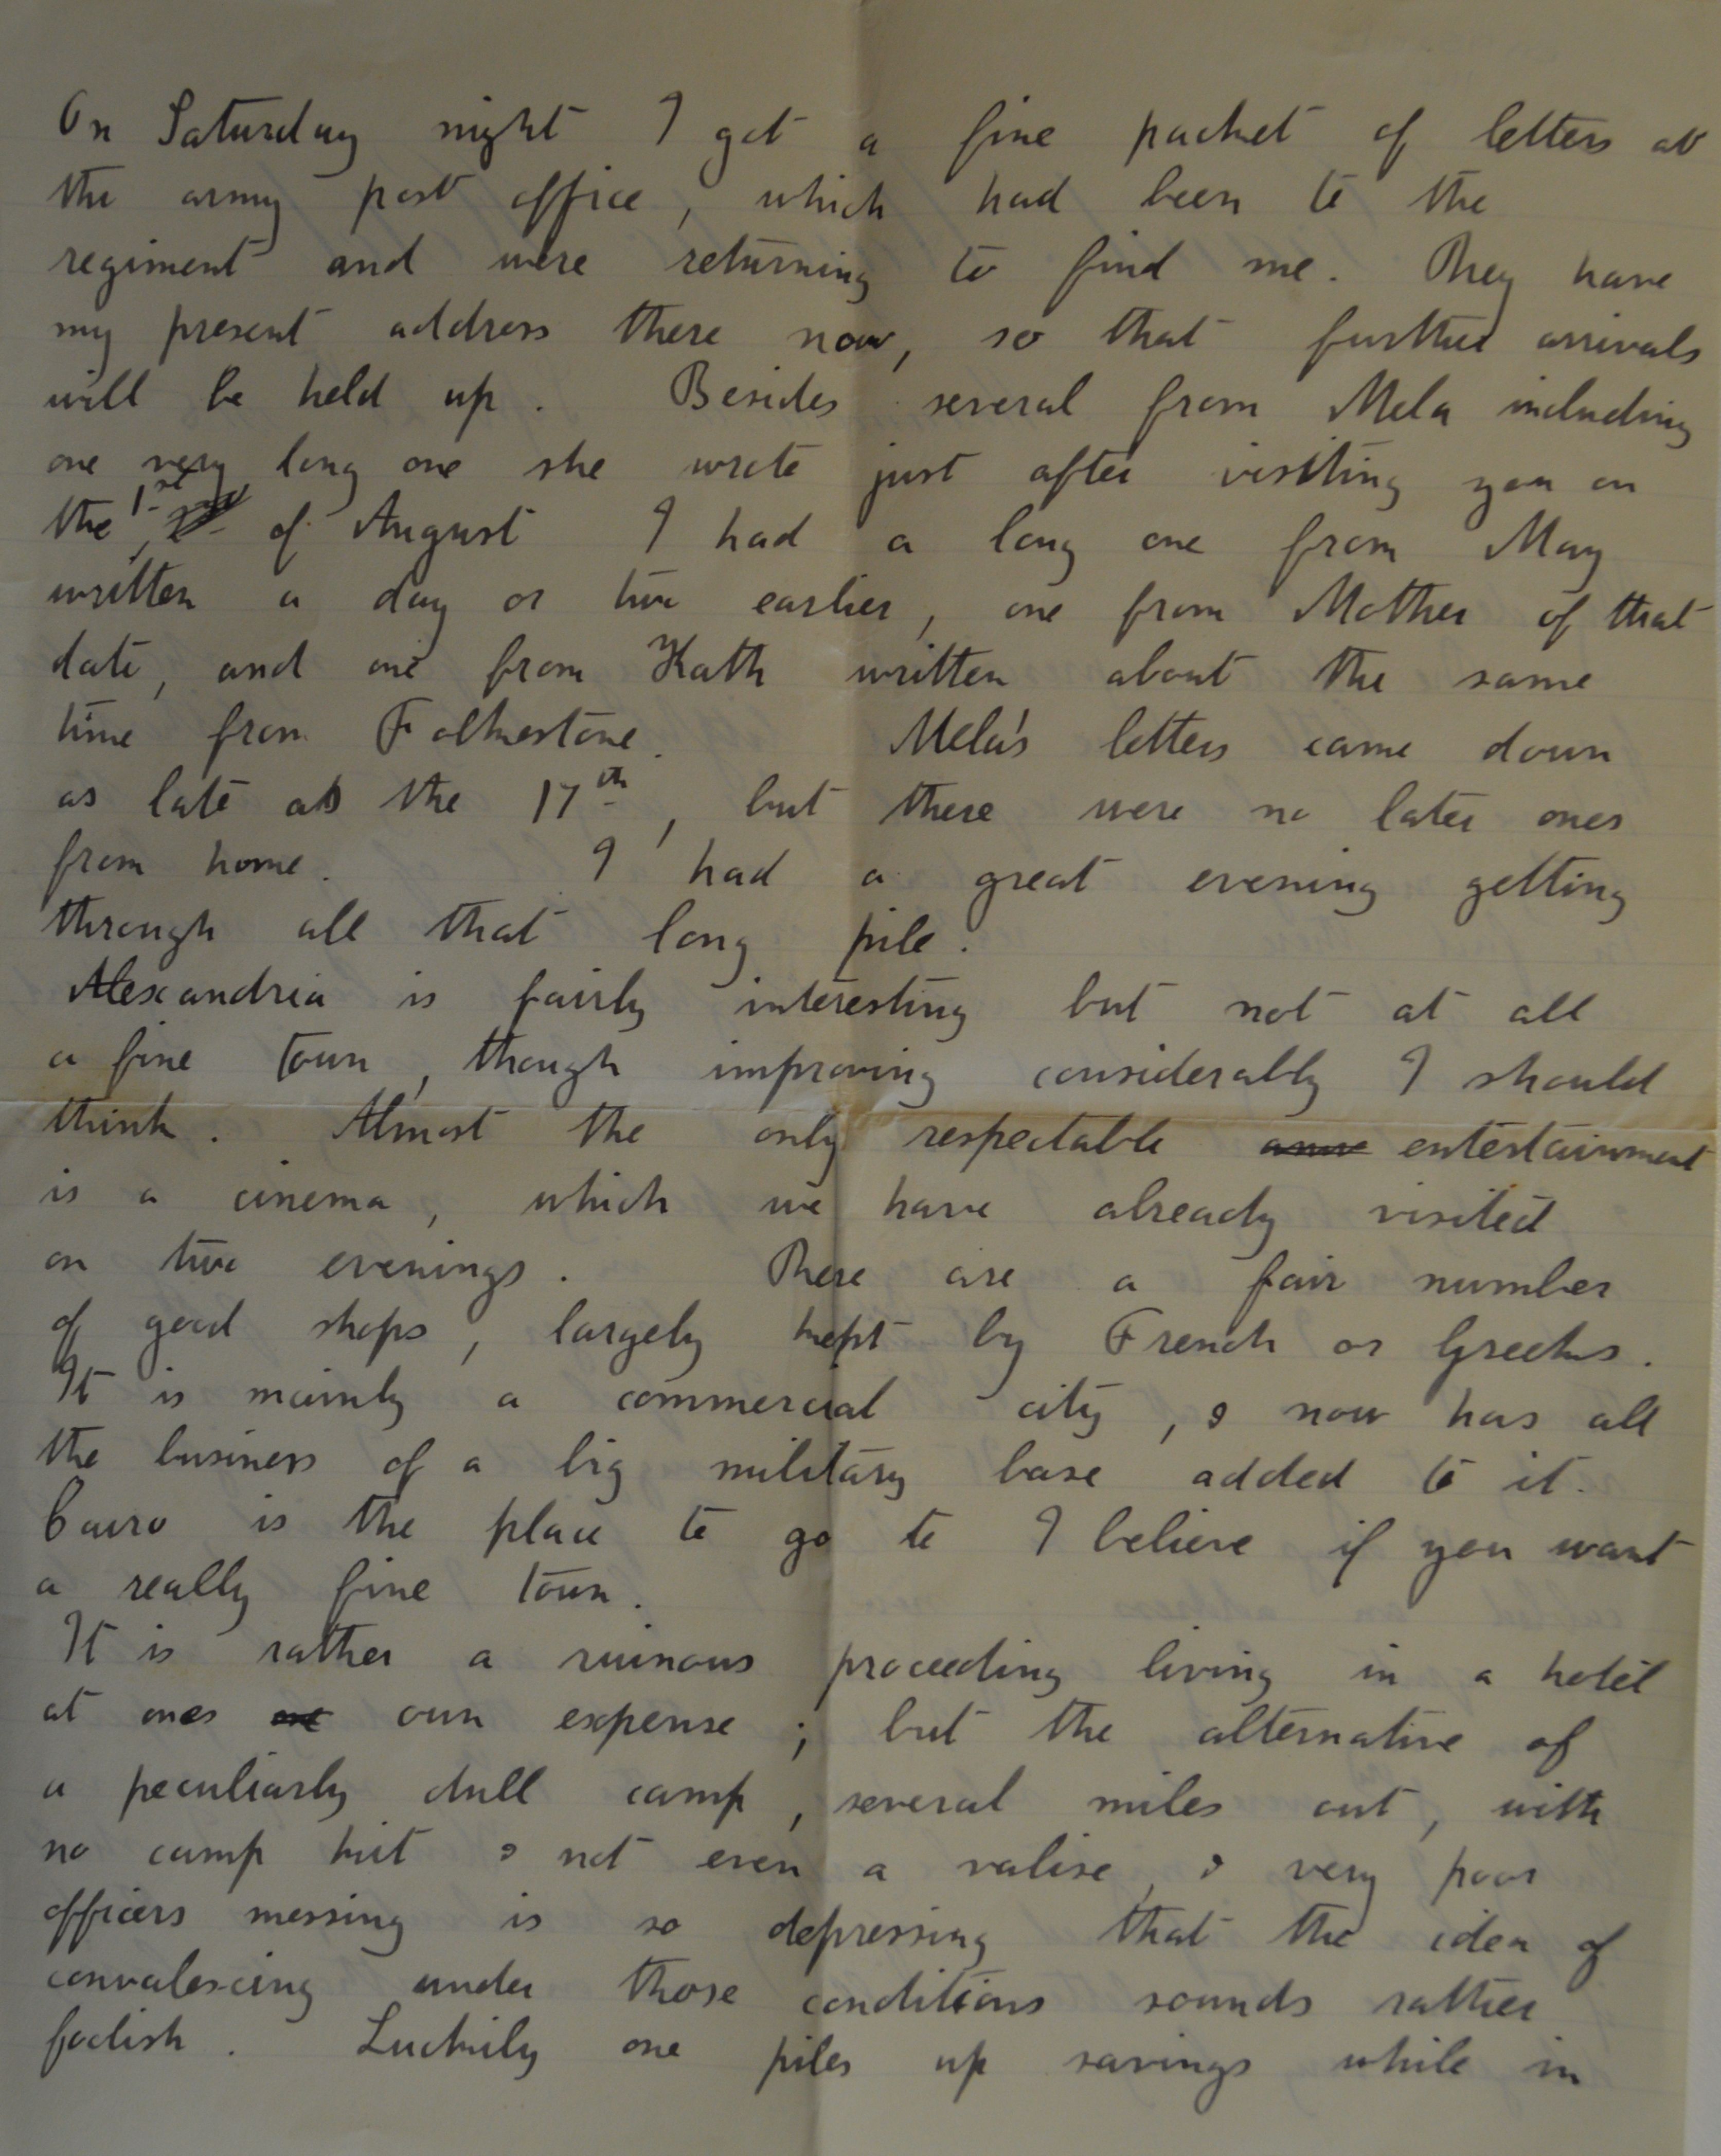 On Saturday night I got a fine packet of letters at
the army post office, which had been to the
regiment and were returning to find me. They have
my present address there now, so that further arrivals
will be held up. Besides several from Mela including
one very long one she wrote just after visiting you on
the 1st of August I had a long one from May
written a day or two earlier, one from Mother of that
date, and one from Kath written about the same
time from Folkestone. Mela's letters came down
as late as the 17th, but there were no later ones
from home. I had a great evening getting
through all that long pile.
Alexandria is fairly interesting but not at all
a fine town, though improving considerably I should
think. Almost the only respectable entertainment
is a cinema, which we have already visited
on two evenings. There are a fair number
of good shops, largely kept by French or Greeks.
It is mainly a commercial city, & now has all
the business of a big military base added to it.
Cairo is the place to go to I believe if you want
a really fine town.
It is rather a ruinous proceeding living in a hotel
at ones own expense; but the alternative of
a peculiarly dull camp, several miles out, with
no camp kit & not even a valise, & very poor
officers messing is so depressing that the idea of
convalescing under those conditions sounds rather
foolish. Luckily one piles up savings while in